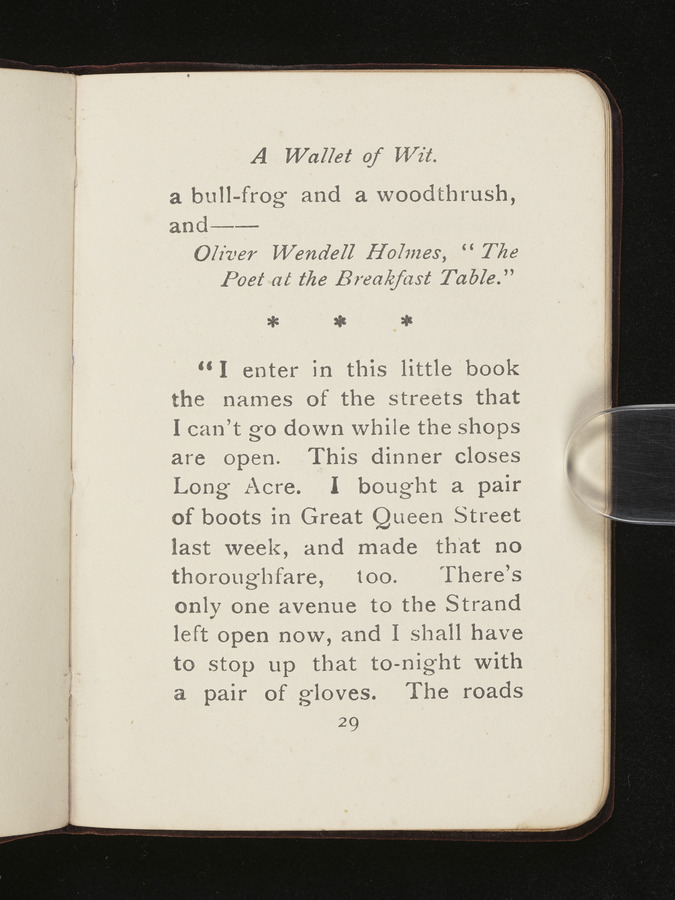 A Wallet of Wit.
a bull-frog and a woodthrush,
and——
Oliver Wendell Holmes, “ The
Poet at the Breakfast Table.”
* * *
“I enter in this little book
the names of the streets that
I can’t go down while the shops
are open. This dinner closes
Long Acre. I bought a pair
of boots in Great Queen Street
last week, and made that no
thoroughfare, too. There’s
only one avenue to the Strand
left open now, and I shall have
to stop up that to-night with
a pair of gloves. The roads
29